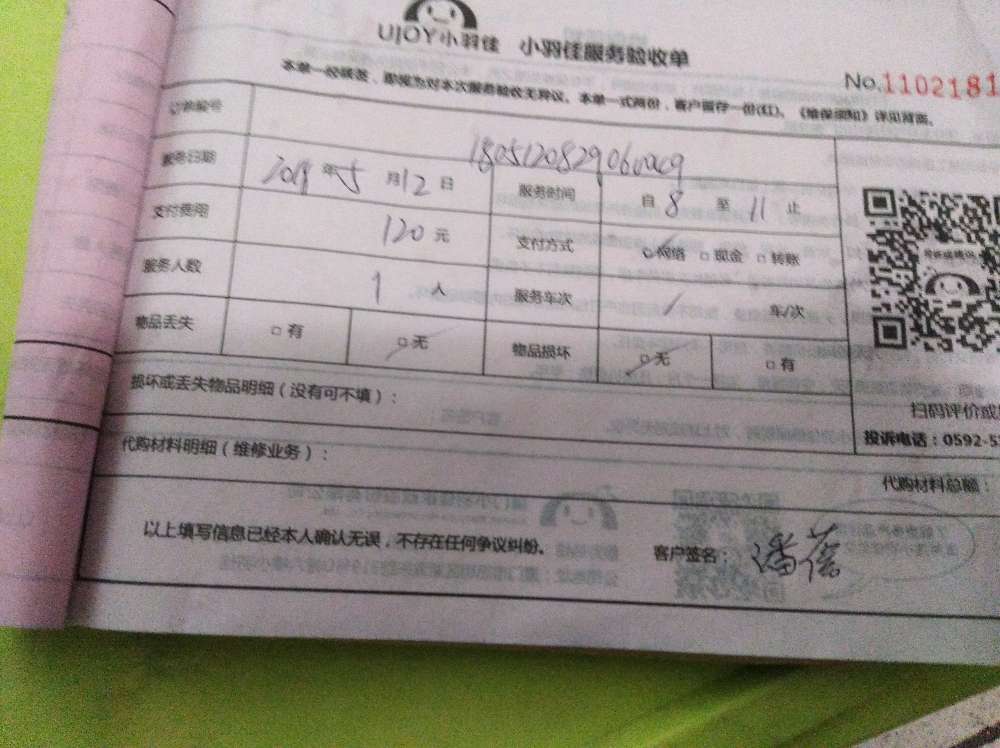 UJOY小羽佳 小羽佳服务验收单
No.1102181
本单一经核签，即视为对本次服务验收无异议。本单一式两份，客户留存一份(红)。《维保须知》详见背面。
订单编号
服务日期 年5月12日 服务时间 自8至11止
支付费用 120元 支付方式 网络 □现金 □转账
服务人数 1人 服务车次 / 车/次
物品丢失 □有 □无 物品损坏 □无 □有
损坏或丢失物品明细（没有可不填）：
扫码评价或
代购材料明细（维修业务）：
投诉电话：0592-5
代购材料总额：
以上填写信息已经本人确认无误，不存在任何争议纠纷。 客户签名：潘